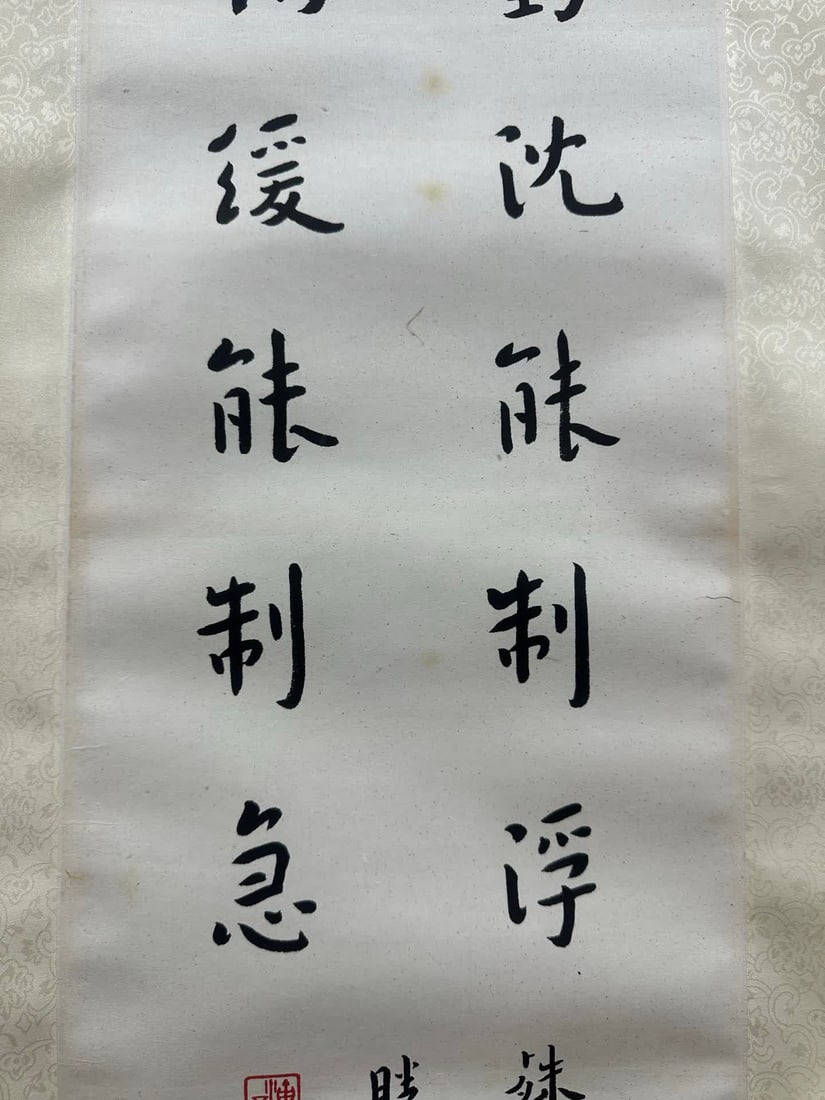 沈能制浮
缓能制急